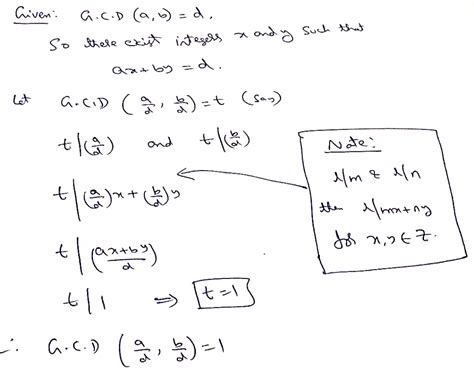 Given: G.C.D (a, b) = d.
So there exist integers x and y such that
ax + by = d.
Let G.C.D (a/d, b/d) = t (say)
t | (a/d) and t | (b/d)
t | (a/d)x + (b/d)y
t | (ax+by/d)
t | 1 ⇒ t = 1
∴ G.C.D (a/d, b/d) = 1
Note:
r/m & r/n
then r/mx+ny
for x, y ∈ Z.